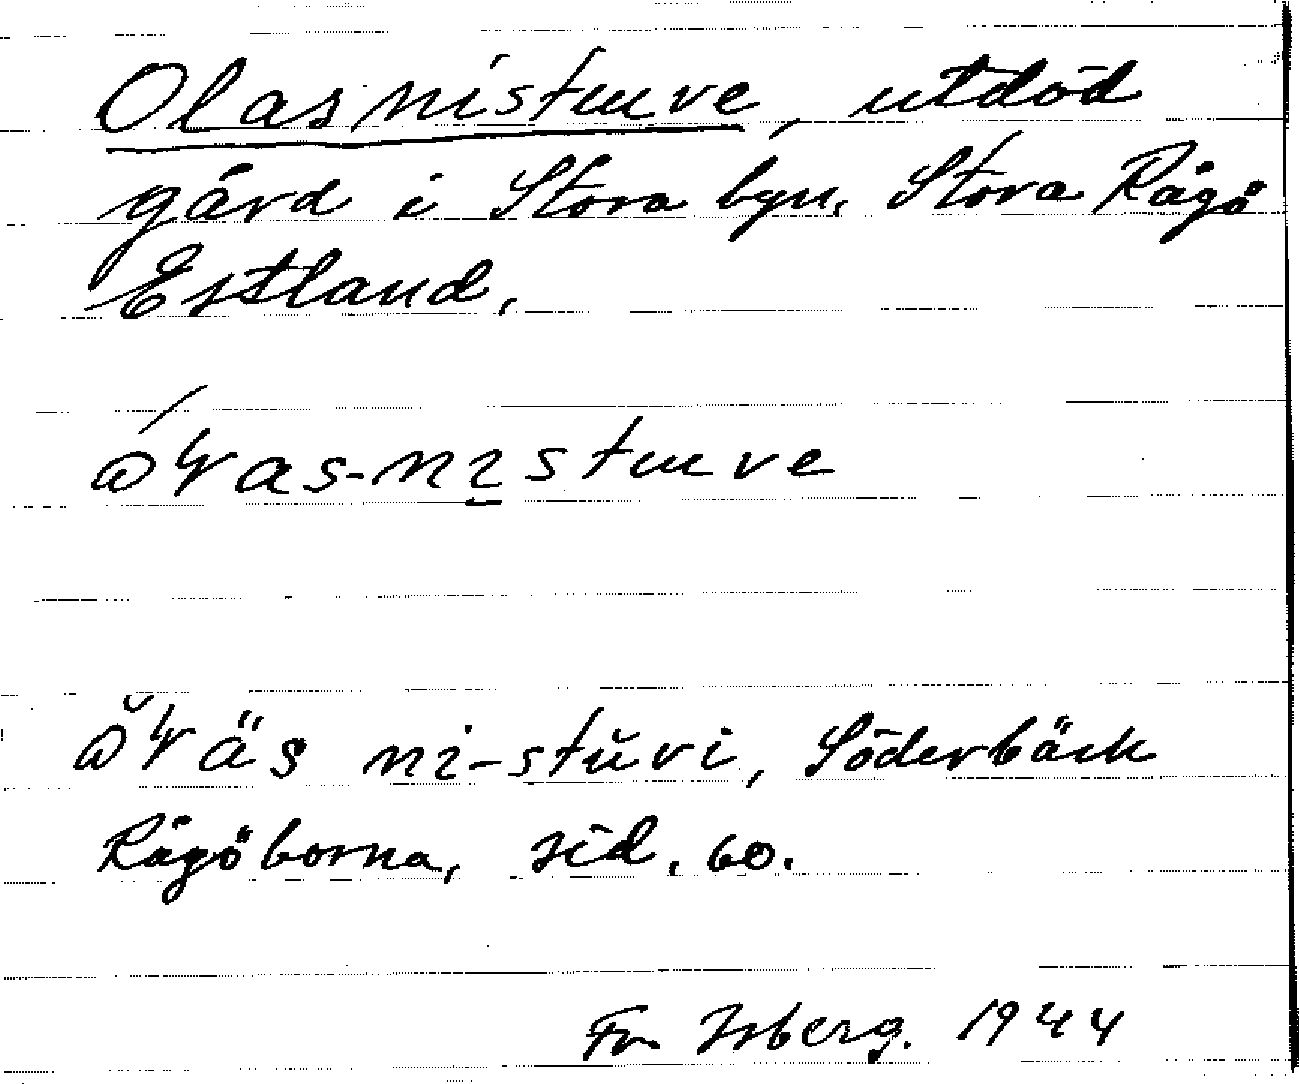 Olasnistuve, utdöd
gård i Stora byn, Stora Rågö
Estland.
ɷɽas-nɪstuve
ɷ̆ɽäs ni-stŭvi, Söderbäck
Rågöborna, sid. 60.
Fr Isberg. 1944